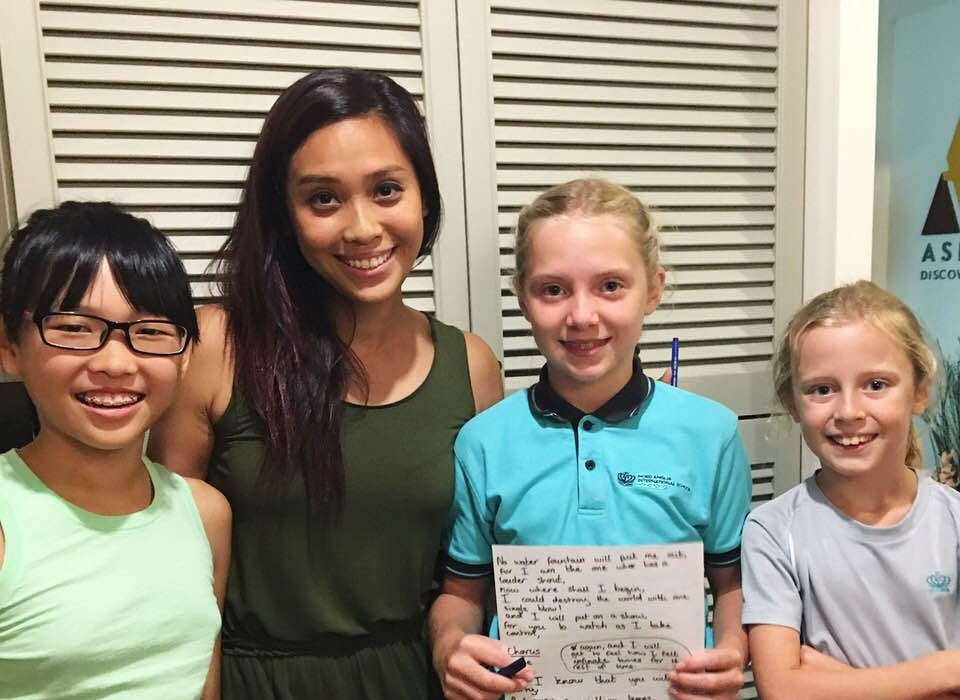 AS
DISCOV
NORD ANGLIA
INTERNATIONAL SCHOOL
No water fountain will put me out,
For I am the one who has a
louder shout,
Now where shall I begin,
I could destroy the world with one
single blow!
and I will put on a show,
For you to watch as I take
control,
Chorus
again, and I will
get to feel how I feel
infinate times for the
rest of time.
I know that you will
million